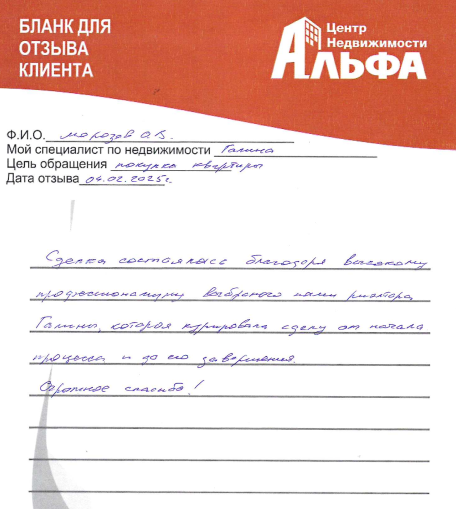 БЛАНК ДЛЯ
ОТЗЫВА
КЛИЕНТА
Центр
Недвижимости
АЛЬФА
Ф.И.О. Морозов О.В.
Мой специалист по недвижимости Галина
Цель обращения покупка квартиры
Дата отзыва 04.02.2025г.
Сделка состоялась благодаря высокому
профессионализму выбранного нами риэлтора
Галины, которая курировала сделку от начала
процесса и до его завершения.
Огромное спасибо!